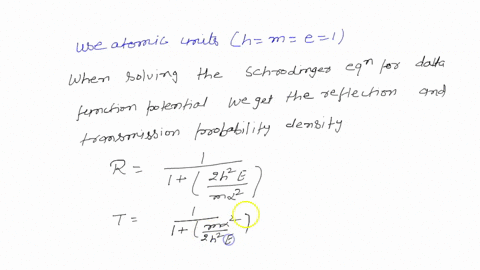 Use atomic units (h=m=e=1)
When solving the Schrodinger eqn for data
function potential we get the reflection and
transmission probability density
R = 1 / 1+(2h²E / mα²)
T = 1 / 1+(mα² / 2h²E)